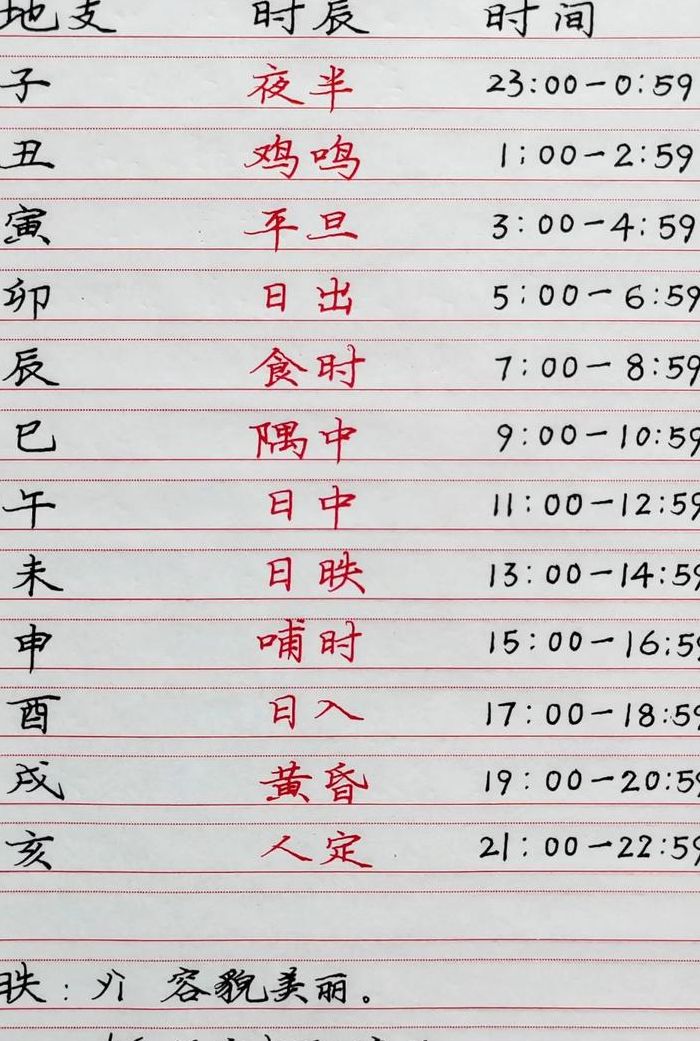 地支 时辰 时间
子 夜半 23:00-0:59
丑 鸡鸣 1:00-2:59
寅 平旦 3:00-4:59
卯 日出 5:00-6:59
辰 食时 7:00-8:59
巳 隅中 9:00-10:59
午 日中 11:00-12:59
未 日昳 13:00-14:59
申 哺时 15:00-16:59
酉 日入 17:00-18:59
戌 黄昏 19:00-20:59
亥 人定 21:00-22:59
昳: yì 容貌美丽。